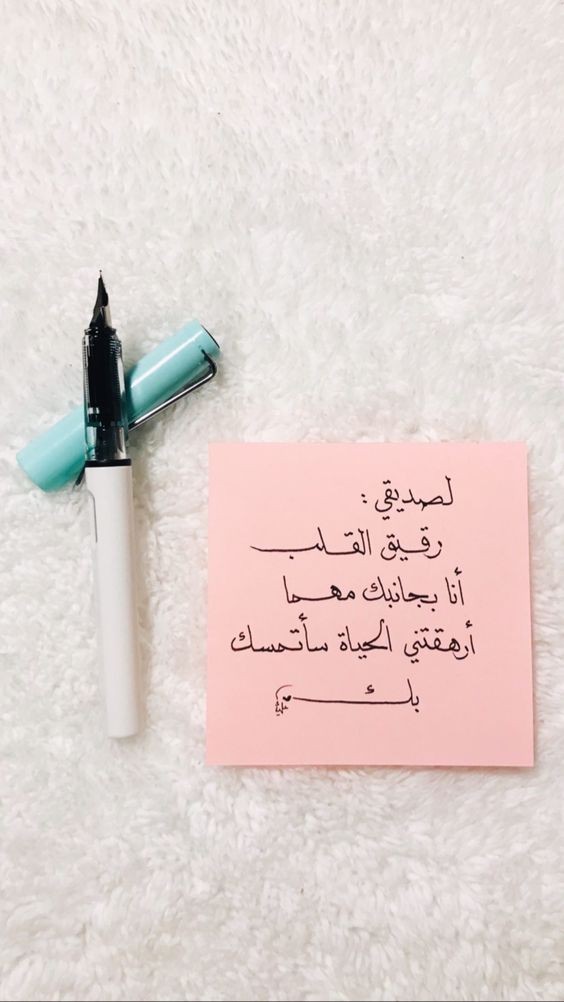 لصديقي :
رقيق القلب
أنا بجانبك مهما
أرهقتني الحياة سأتمسك
بك